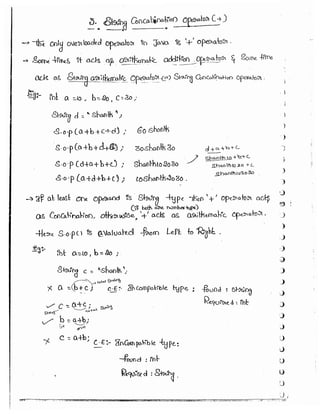 3. String Concatination operator (+)
→ The only overloaded operator in Java is '+' operator.
→ Some times it acts as arithmetic addition operator & Some time
acts as String arithmetic operator (or) String Concatination operator.
Eg:- int a=10, b=20, c=30;
String d = "Shanth";
S.o.p (a+b+c+d); 60Shanth
S.o.p (a+b+d+c); 30Shanth30
S.o.p (d+a+b+c); Shanth102030
S.o.p (a+d+b+c); 10Shanth2030.
d+a+b+c
Shanth10+b+c
Shanth1020+c
Shanth102030
→ If at least one operand is String type then '+' operator acts
(If both are number type)
as Concatination, otherwise, '+' acts as arithmetic operator.
→ Here S.o.p() is evaluated from Left to Right.
Eg:- int a=10, b=20;
String c = "Shanth";
x a = b+c; C.E:- Incompatible type; found : String
Required : int
✓ c = a+c;
✓ b = a+b;
x c = a+b; C.E:- Incompatible type;
found : int
Required : String.